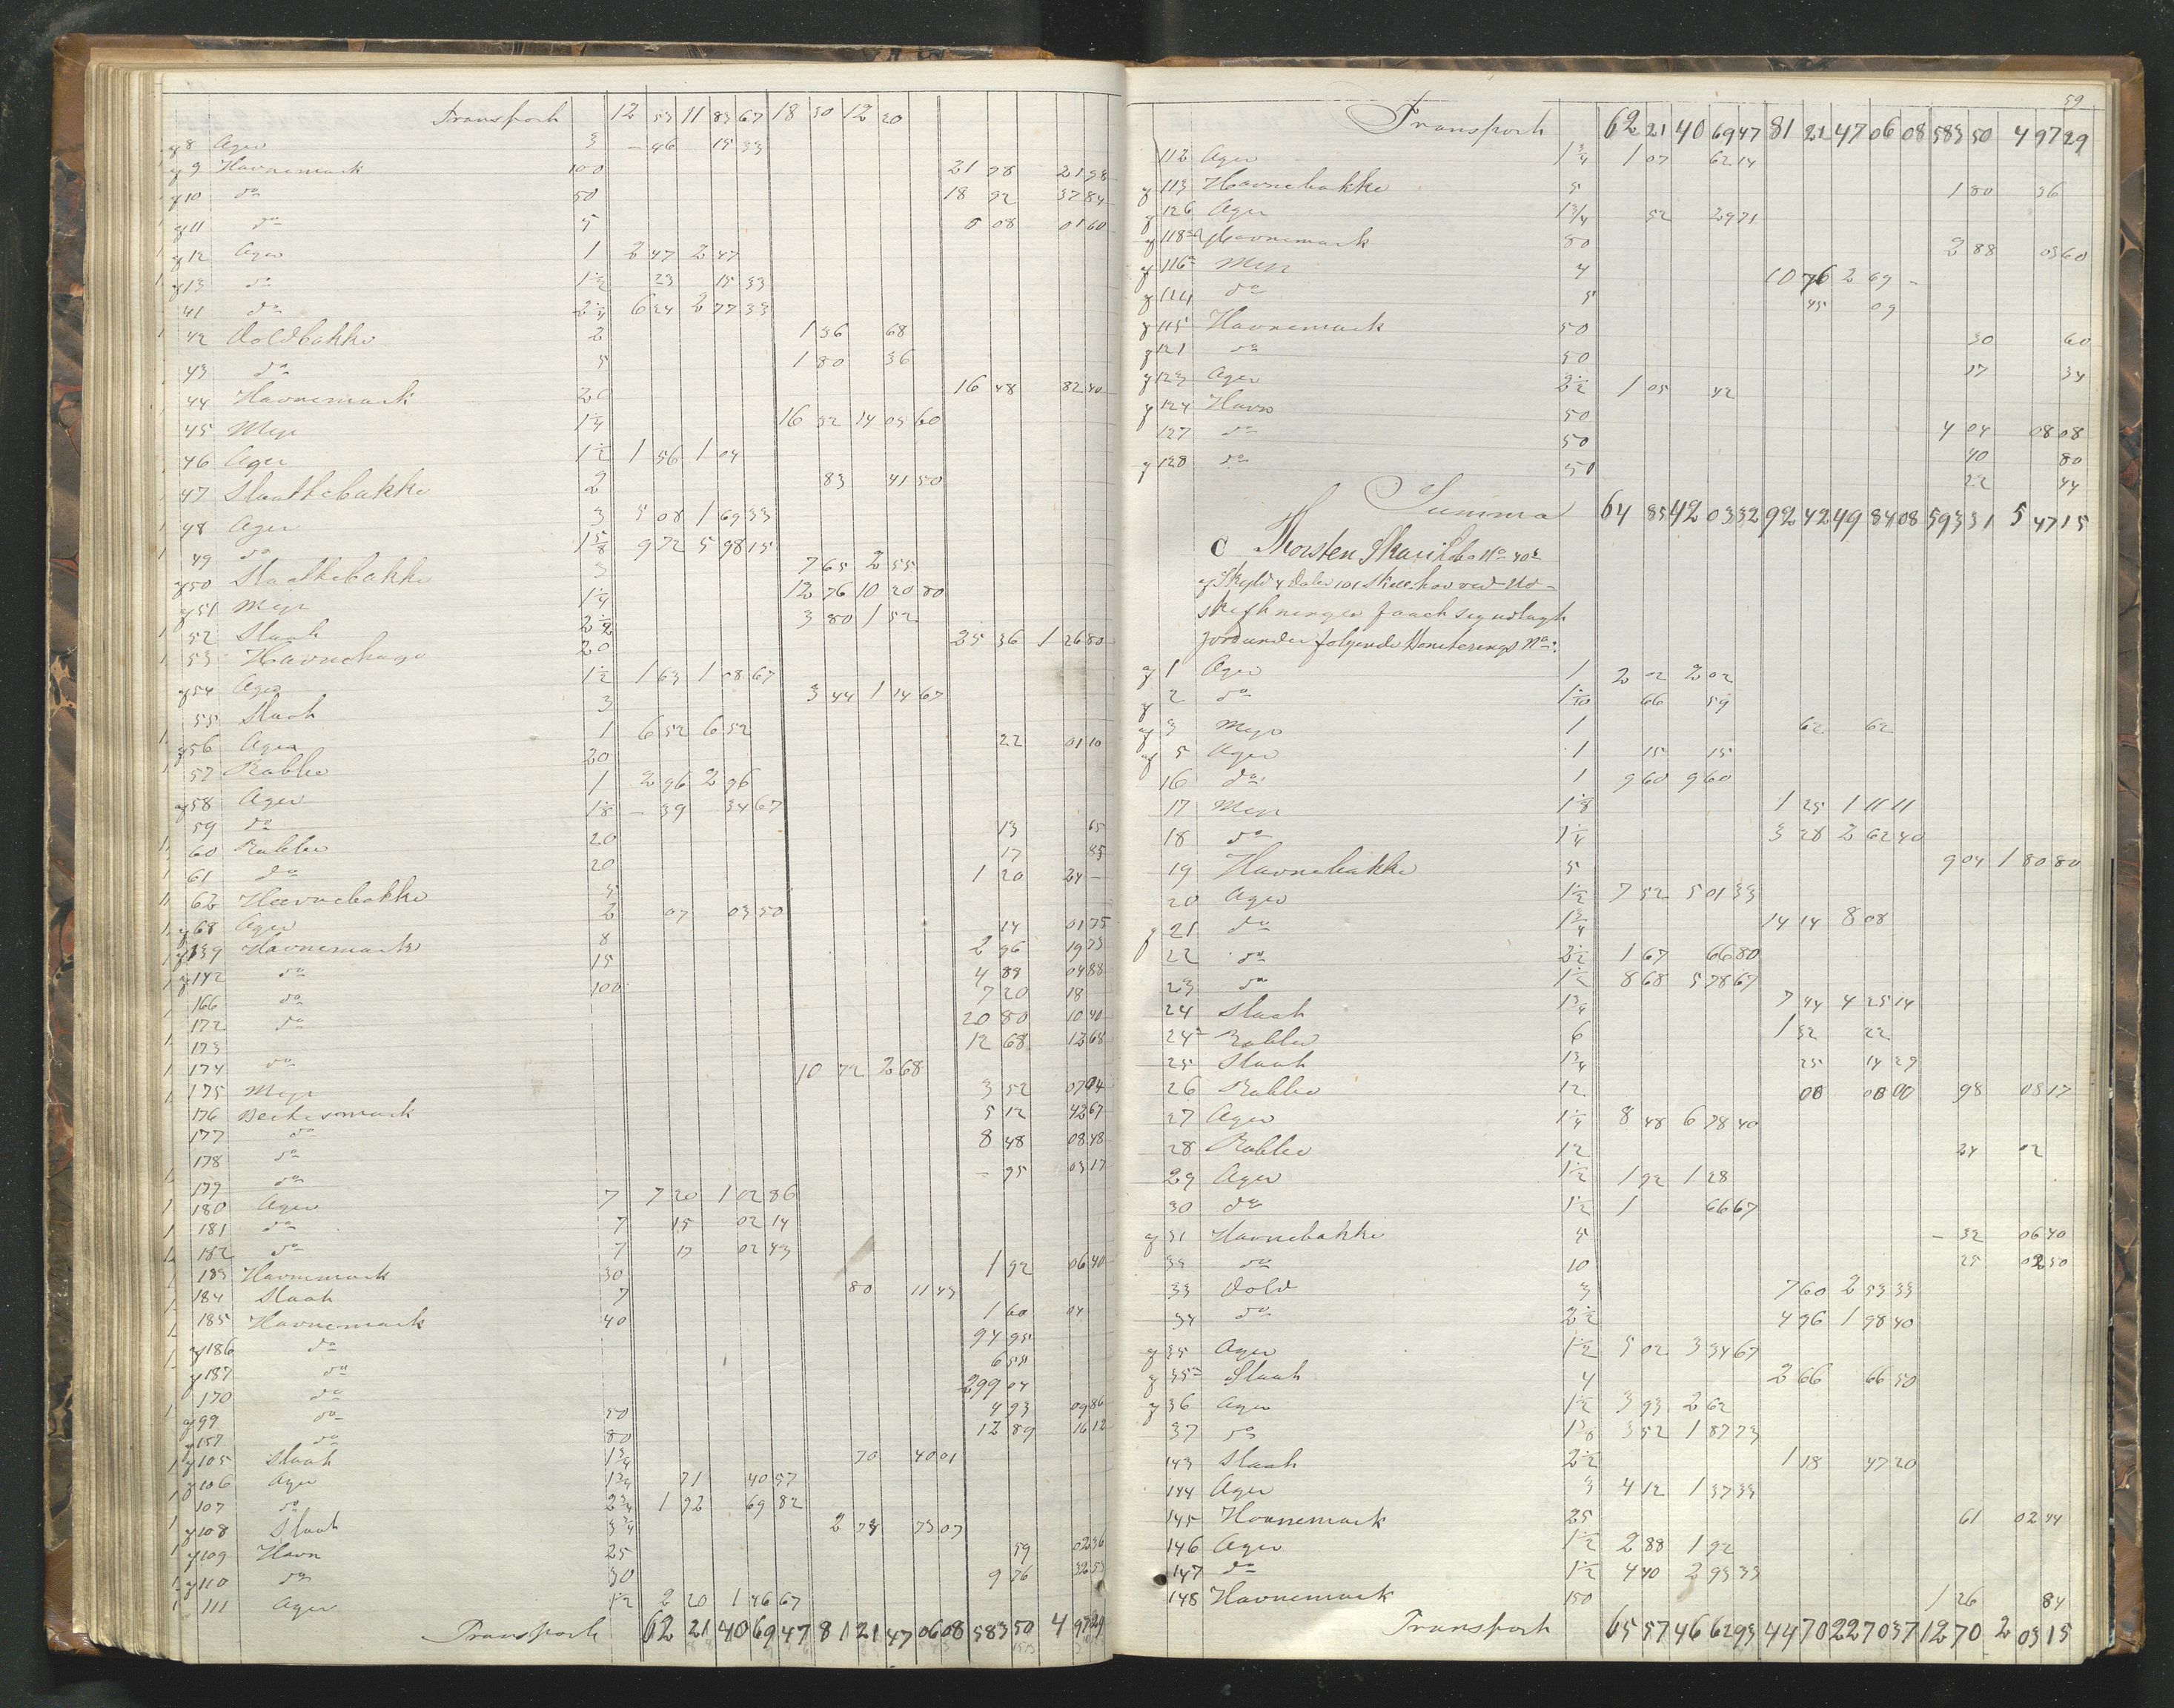 Transport 12 53 11 83 67 18 30 12 20
8 Ager 3 — 46 15 33
9 Havnemark 100 21 98 21 98
10 do 50 18 92 37 84
11 do 5 08 01 60
12 Ager 1 2 47 2 47
13 do 1½ 23 15 33
41 do 2¼ 6 24 2 77 33
42 Voldbakke 2 1 36 68
43 do 5 1 80 36
44 Havnemark 20 16 48 82 40
45 Myr 16 32 14 05 60
46 Ager 1½ 1 56 1 04
47 Slaattebakke 2 83 41 50
48 Ager 3 5 08 1 69 33
49 do 1⅝ 9 72 5 98 15
50 Slaattebakke 3 7 65 2 55
51 Myr 1¼ 12 76 10 20 80
52 Slaat 2½ 3 80 1 52
53 Havnehage 20 25 36 1 26 80
54 Ager 1½ 1 63 1 08 67
55 Slaat 3 3 44 1 14 67
56 Ager 1 6 52 6 52
57 Rabbe 20 22 01 10
58 Ager 1 2 96 2 96
59 do 1⅛ — 39 34 67
60 Rabbe 20 13 65
61 do 20 17 85
62 Havnebakke 5 1 20 24 —
68 Ager 2 07 03 50
139 Havnemark 8 14 01 75
142 do 15 2 96 19 73
166 do 100 4 89 04 88
172 do 7 20 18
173 20 80 10 40
174 do 12 68 12 68
175 Myr 10 72 2 68
176 Beitesmark 3 52 07 04
177 do 5 12 42 67
178 do 8 48 08 48
179 do — 95 03 17
180 Ager 7 7 20 1 02 86
181 do 7 15 02 14
182 do 7 17 02 43
183 Havnemark 30 1 92 06 40
184 Slaat 7 80 11 43
185 Havnemark 40 1 60 04
186 do 94 95
187 do 6 55
170 do 299 04
99 do 50 4 93 09 86
157 do 80 12 89 16 12
105 Slaat 1¾ 70 40 01
106 Ager 1¾ 71 40 57
107 do 2¾ 1 92 69 82
108 Slaat 3¾ 2 74 73 07
109 Havn 25 59 02 36
110 do 30 9 76 32 53
111 Ager 1½ 2 20 1 46 67
Transport 62 21 40 69 47 81 21 47 06 08 583 50 4 97 29
59
Transport 62 21 40 69 47 81 21 47 06 08 583 50 4 97 29
112 Ager 1¾ 1 07 62 14
113 Havnebakke 5 1 80 36
126 Ager 1¾ 52 29 71
118 Havnemark 80 2 88 03 60
116 Myr 4 10 76 2 69 —
114 do 5 45 09
115 Havnemark 50 30 60
121 do 50 17 34
123 Ager 2½ 1 05 42
124 Havn 50
127 do 50 4 04 08 08
128 do 50 40 80
22 44
Summa 64 85 42 03 32 92 42 49 84 08 593 31 5 47 15
C Thorsten
af Skyld 4 Daler 101 Skill. har ved Ud-
skiftningen faaet sig udlagt
Jord under følgende Boniterings No:
1 Ager 1 2 02 2 02
2 do 1⅒ 66 59
3 Myr 1 62 62
5 Ager 1 15 15
16 do 1 9 60 9 60
17 Myr 1⅛ 1 25 1 11 11
18 do 1¼ 3 28 2 62 40
19 Havnebakke 5 9 04 1 80 80
20 Ager 1½ 7 52 5 01 33
21 do 1¾ 14 14 8 08
22 do 2½ 1 67 66 80
23 do 1½ 8 68 5 78 67
24 Slaat 1¾ 7 44 4 25 14
24 Rabbe 6 1 32 22
25 Slaat 1¾ 25 14 29
26 Rabbe 12 00 00 00 98 08 17
27 Ager 1¼ 8 48 6 78 40
28 Rabbe 12 24 02
29 Ager 1½ 1 92 1 28
30 do 1½ 1 66 67
31 Havnebakke 5 — 32 06 40
32 do 10 25 02 50
33 Vold 3 7 60 2 53 33
34 do 2½ 4 96 1 98 40
35 Ager 1½ 5 02 3 34 67
35 Slaat 4 2 66 66 50
36 Ager 1½ 3 93 2 62
37 do 3 52 1 87 73
143 Slaat 2½ 1 18 47 20
144 Ager 3 4 12 1 37 33
145 Havnemark 25 61 02 44
146 Ager 1½ 2 88 1 92
147 do 1½ 4 40 2 93 33
148 Havnemark 150 1 26 84
Transport 65 57 46 62 93 44 70 22 70 37 12 70 2 03 15